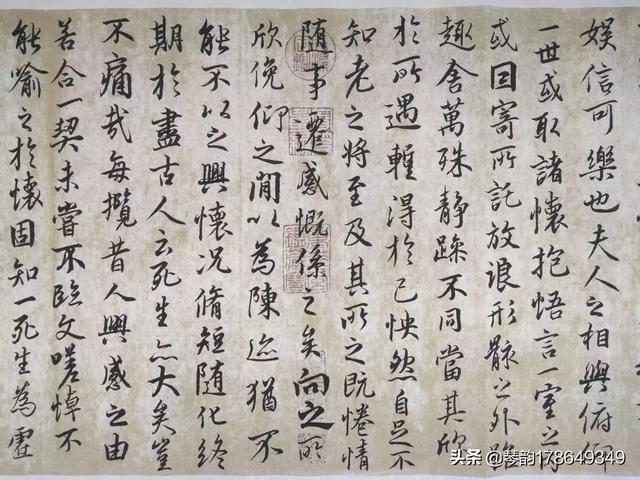 娱信可樂也夫人之相與俯仰
一世或取諸懷抱悟言一室之内
或因寄所託放浪形骸之外雖
趣舍萬殊静躁不同當其欣
於所遇輊得於己怏然自足不
知老之將至及其所之既惓情
随事遷感慨係之矣向之所
欣俛仰之閒以為陳迹猶不
能不以之興懷況脩短随化終
期於盡古人云死生亦大矣豈
不痛哉每攬昔人興感之由
若合一契未嘗不臨文嗟悼不
能喻之於懷固知一死生為虚
头条 @琴韵178649349